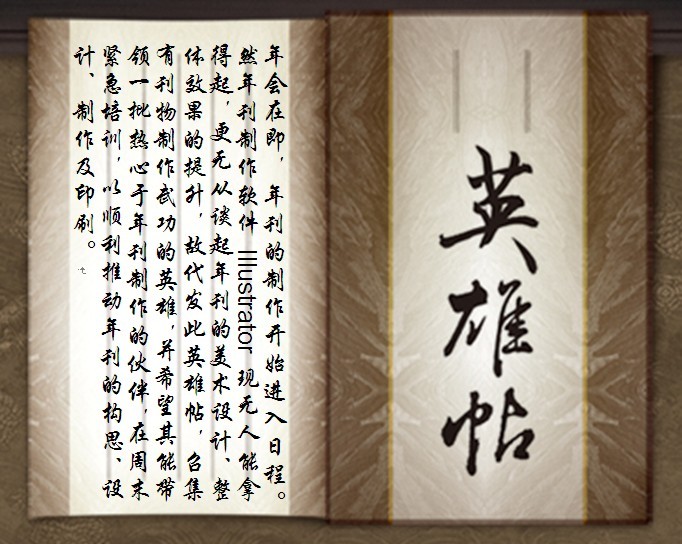 英雄帖
年会在即，年刊的制作开始进入日程。
然年刊制作软件 Illustrator 现无人能拿
得起，更无从谈起年刊的美术设计、整
体效果的提升，故代发此英雄帖，召集
有刊物制作武功的英雄，并希望其能带
领一批热心于年刊制作的伙伴，在周末
紧急培训，以顺利推动年刊的构思、设
计、制作及印刷。